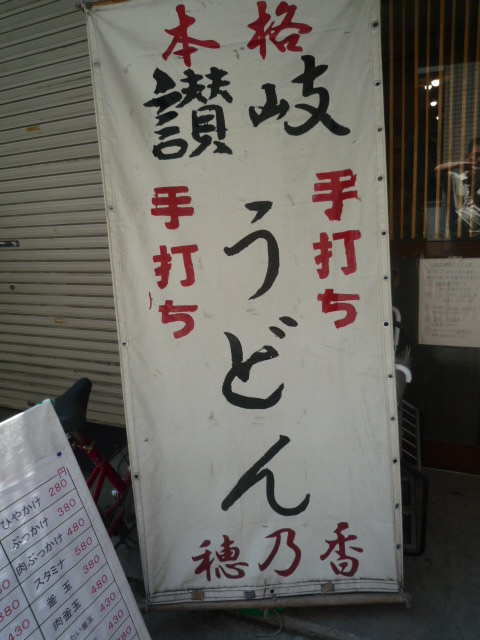 本格
讃岐
手打ち
うどん
手打ち
穂乃香
円
ひやかけ 280
ぶっかけ 380
肉ぶっかけ 480
スタミナ 580
釜玉 380
肉釜玉 480
430
430